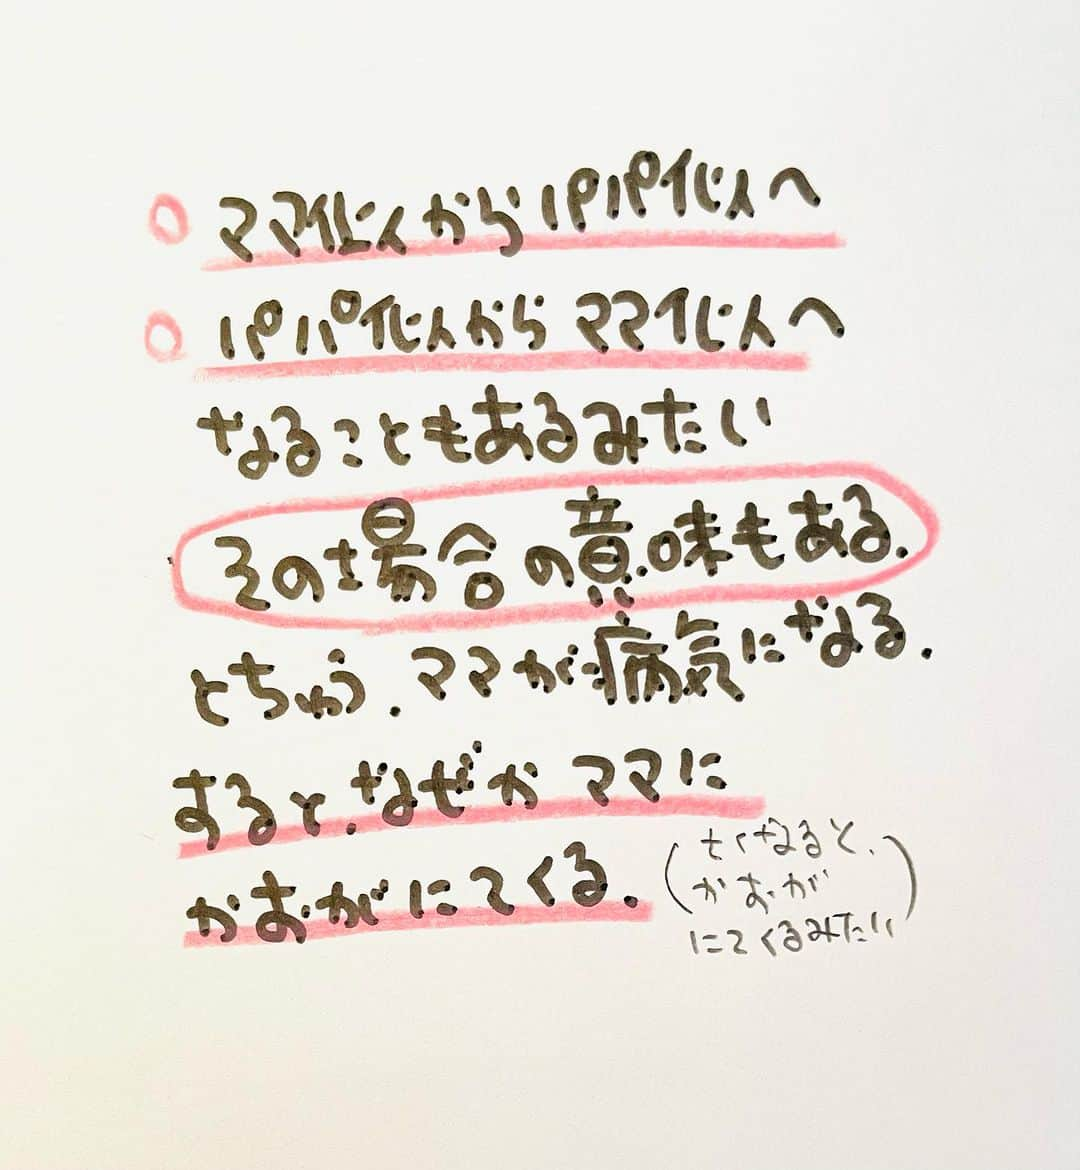 ママイじんからパパイじんへ
パパイじんからママイじんへ
なることもあるみたい
その場合の意味もある.
とちゅう.ママが病気になる.
すると.なぜかママに
かおがにてくる.
(ちくなると、
かおが
にてくるみたい)